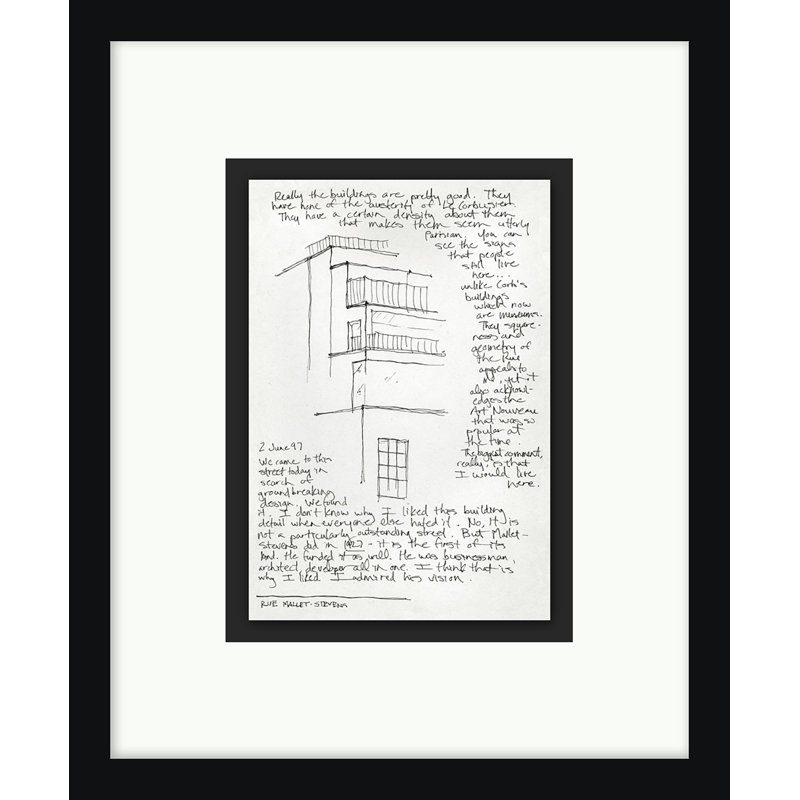 Really the buildings are pretty good. They
have none of the austerity of Le Corbusier.
They have a certain density about them
that makes them seem utterly
Parisian. You can
see the signs
that people
still live
here...
unlike Corb's
buildings
which now
are museums.
They square-
ness and
geometry of
the Rue
appeals to
me, yet it
also acknowl-
edges the
Art Nouveau
that was so
popular at
the time.
The biggest comment,
really, is that
I would live
here.
2 June 97
We came to this
street today in
search of
groundbreaking
design. We found
it. I don't know why I liked this building
detail when everyone else hated it. No, it is
not a particularly outstanding street. But Mallet-
Stevens did in 1927 - it is the first of its
kind. He funded it as well. He was businessman,
architect, developer all in one. I think that is
why I liked. I admired his vision.
RUE MALLET-STEVENS